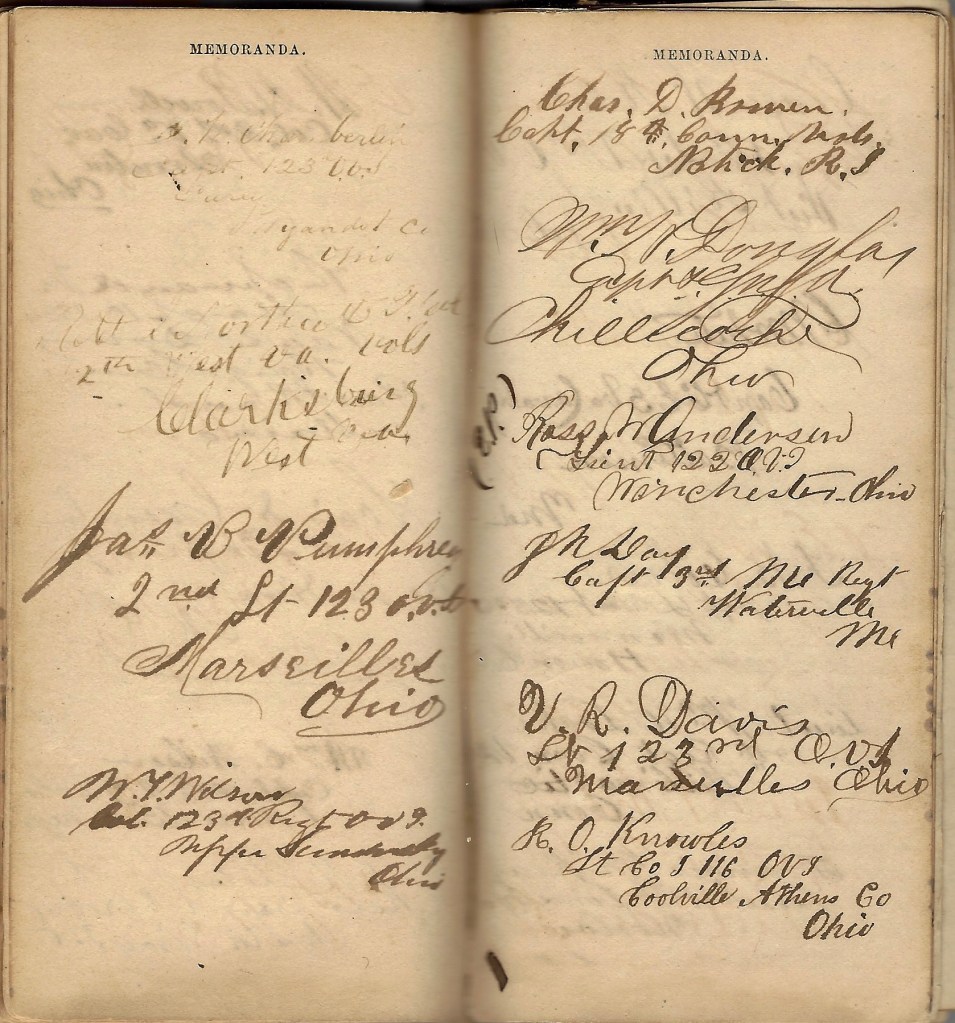 MEMORANDA.
berlin
123 OVI
yandot Co
Ohio
2th West Va. Vols
Clarksburg
West Va.
Jas. B Pumphrey
2nd Lt 123 O.V.I.
Marseilles
Ohio
W.T. Wilson
Col. 123d Regt O V I.
Upper Sandusky
Ohio
MEMORANDA.
Chas. D. Bowen.
Capt. 18th Conn. Vols.
Natick. R.I
Wm Douglas
Capt &
Chillicothe
Ohio
Ross W Anderson
Lieut 122 OVI
Winchester Ohio
J H Day
Capt 3rd Me Regt
Waterville
Me
V. R. Davis
Lt 123rd O.V.I
Marseilles Ohio
R. O. Knowles
Lt Co I 116 OVI
Coolville Athens Co
Ohio